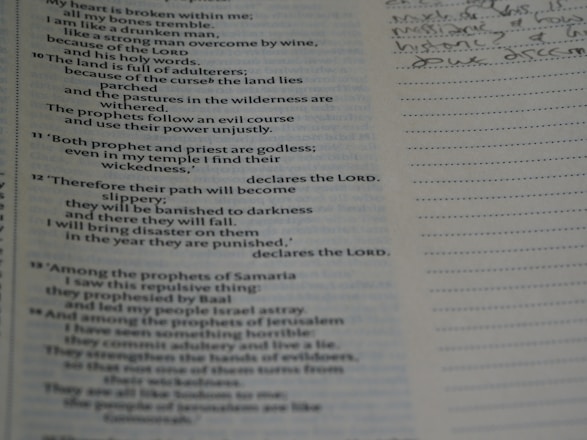 My heart is broken within me;
all my bones tremble.
I am like a drunken man,
like a strong man overcome by wine,
because of the LORD
and his holy words.
10 The land is full of adulterers;
because of the curse the land lies
parched
and the pastures in the wilderness are
withered.
The prophets follow an evil course
and use their power unjustly.
11 ‘Both prophet and priest are godless;
even in my temple I find their
wickedness,’
declares the LORD.
12 ‘Therefore their path will become
slippery;
they will be banished to darkness
and there they will fall.
I will bring disaster on them
in the year they are punished,’
declares the LORD.
13 ‘Among the prophets of Samaria
I saw this repulsive thing:
they prophesied by Baal
and led my people Israel astray.
14 And among the prophets of Jerusalem
I have seen something horrible:
they commit adultery and live a lie.
They strengthen the hands of evildoers,
so that not one of them turns from
their wickedness.
They are all like Sodom to me;
the people of Jerusalem are like
Gomorrah.’